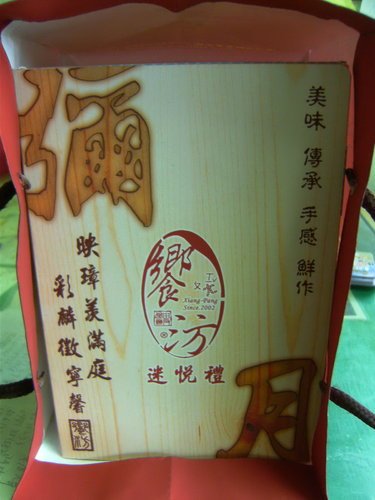 彌月
美味 傳承 手感 鮮作
映璋美滿庭
彩麟徵寧馨
饗坊
Xiang-Pang
Since 2002
迷悅禮